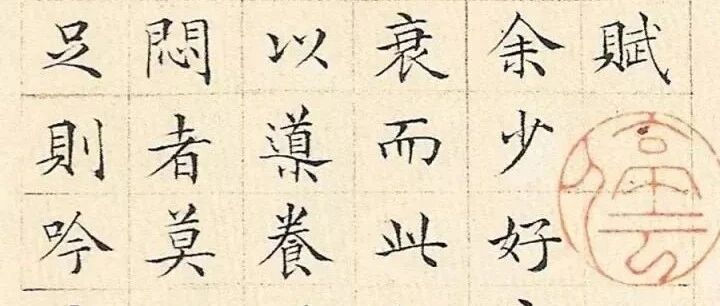 賦
余少好
衰而此
以導養
悶者莫
足則吟